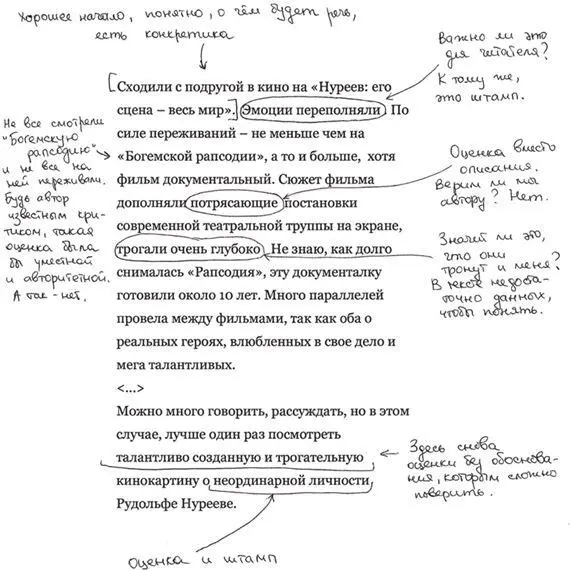 Хорошее начало, понятно, о чём будет речь,
есть конкретика
Важно ли это
для читателя?
К тому же,
это штамп.
[Сходили с подругой в кино на «Нуреев: его
сцена – весь мир».] Эмоции переполняли. По
силе переживаний – не меньше чем на
«Богемской рапсодии», а то и больше, хотя
фильм документальный. Сюжет фильма
дополняли потрясающие постановки
современной театральной труппы на экране,
трогали очень глубоко. Не знаю, как долго
снималась «Рапсодия», эту документалку
готовили около 10 лет. Много параллелей
провела между фильмами, так как оба о
реальных героях, влюбленных в свое дело и
мега талантливых.
<...>
Можно много говорить, рассуждать, но в этом
случае, лучше один раз посмотреть
талантливо созданную и трогательную
кинокартину о неординарной личности
Рудольфе Нурееве.
Не все смотрели
"Богемскую
рапсодию"
и не все на
ней переживали.
Будь автор
известным кри-
тиком, такая
оценка была
бы уместной
и авторитетной.
А так - нет.
Оценка вместо
описания.
Верим ли мы
автору? Нет.
Значит ли это,
что они
тронут и меня?
В тексте недоста-
точно данных,
чтобы понять.
Здесь снова
оценки без обоснова-
ния, которым сложно
поверить.
Оценка и штамп